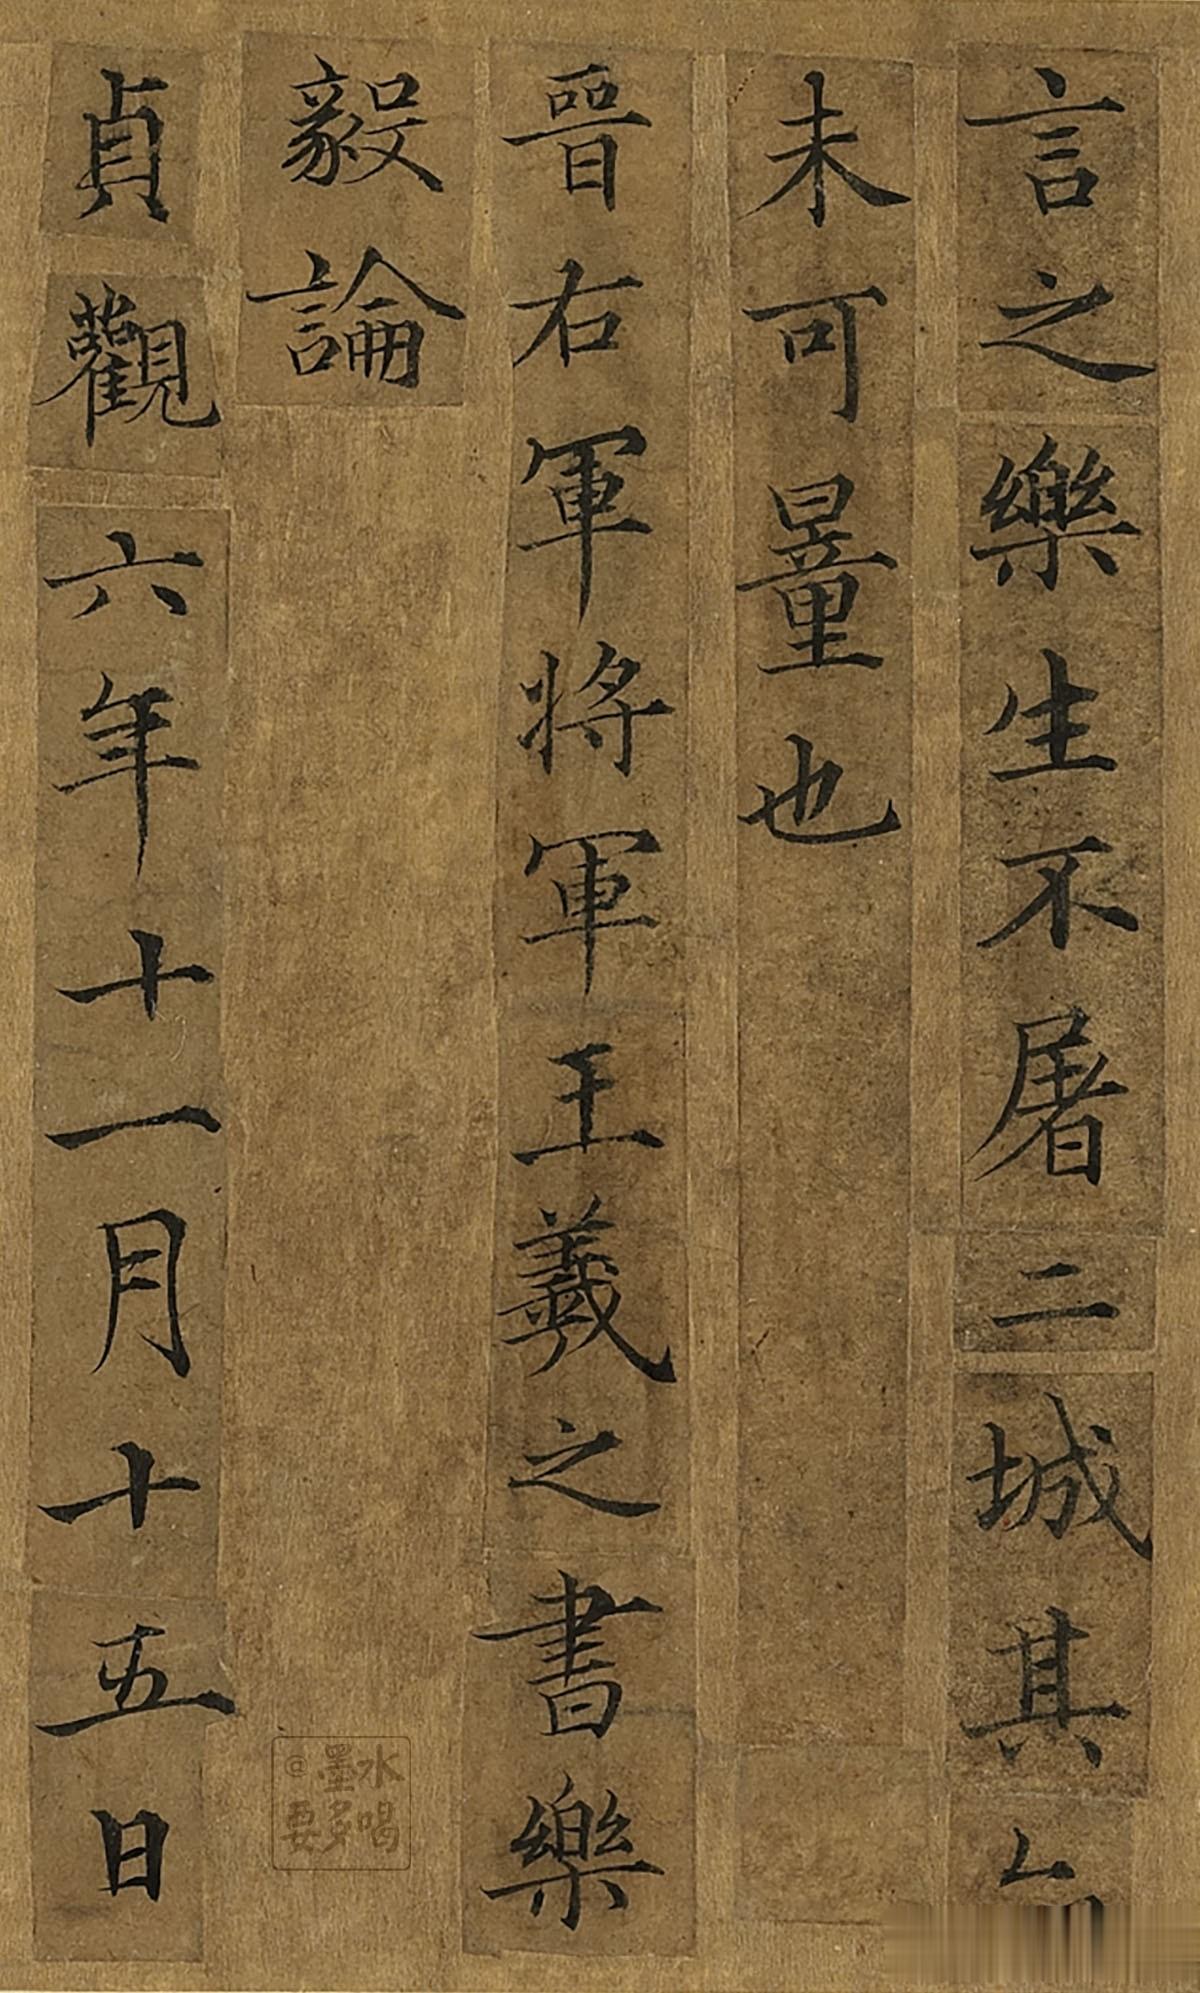 言之樂生不屠二城其
未可量也
晉右軍將軍王羲之書樂
毅論
貞觀六年十一月十五日
@墨水
要多喝